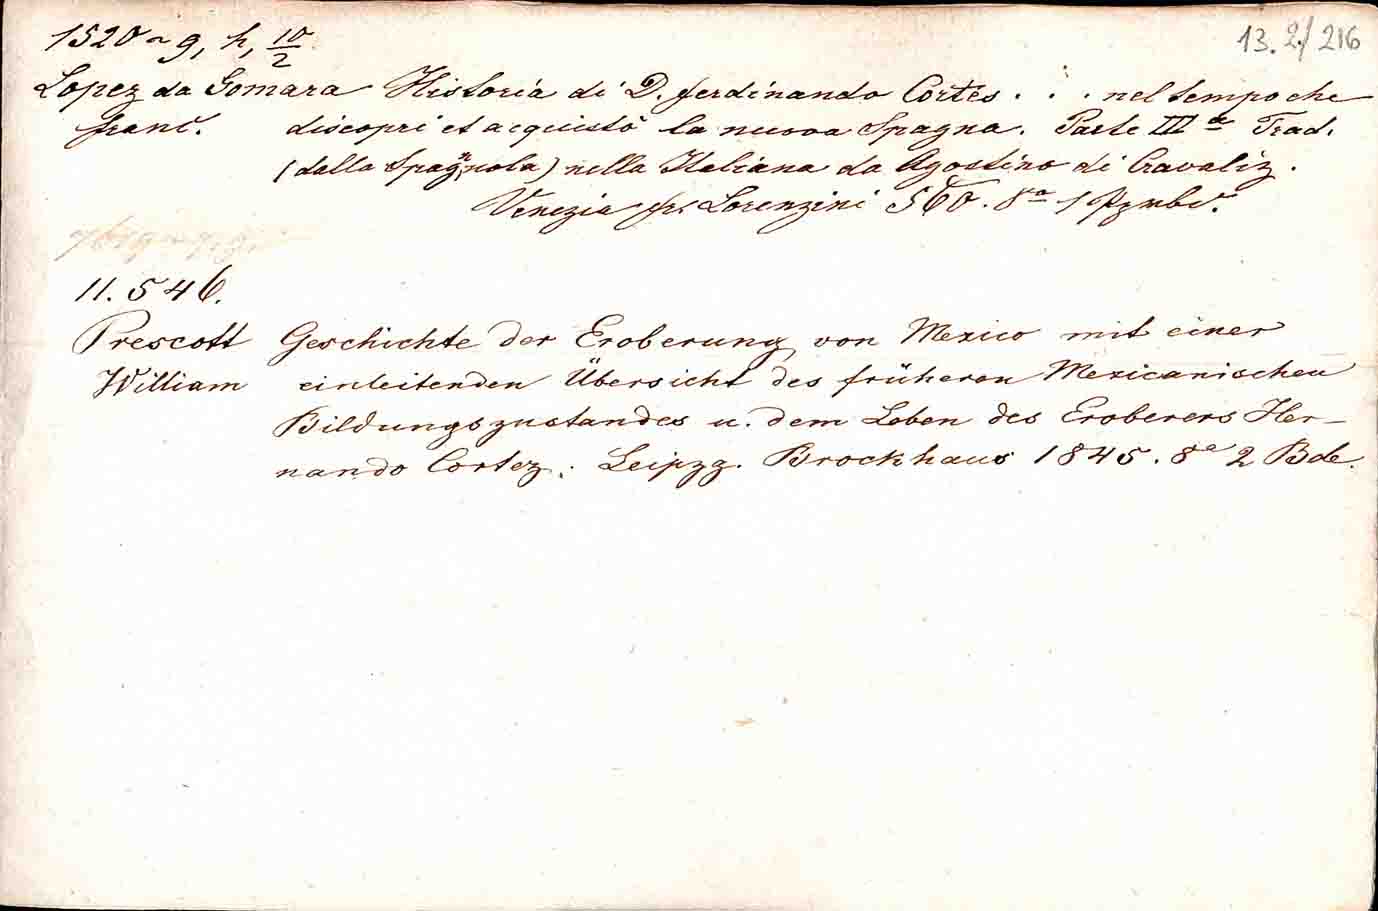 1520~g, h, 10/2
13.2/216
Lopez da Gomara Historia di D. ferdinando Cortes . . . nel tempo che
franc. discoprì et acquistò la nuova Spagna. Parte IIIa Trad.
(dalla Spagnuola) nella Italiana da Agostino di Cravaliz.
Venezia fr. Lorenzini 560. 8o 1
11.546.
Prescott Geschichte der Eroberung von Mexico mit einer
William einleitenden Übersicht des früheren Mexicanischen
Bildungszustandes u. dem Leben des Eroberers Her-
nando Cortez. Leipzg. Brockhaus 1845. 8o 2 Bde.